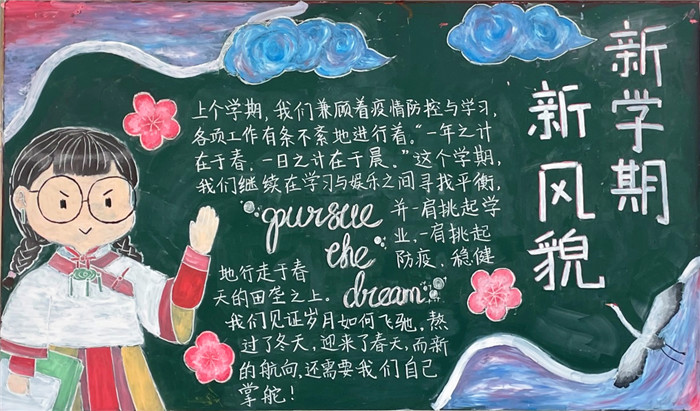 新学期
新风貌
上个学期，我们兼顾着疫情防控与学习，
各项工作有条不紊地进行着。“一年之计
在于春，一日之计在于晨。”这个学期，
我们继续在学习与娱乐之间寻找平衡，
并一肩挑起学
业，一肩挑起
防疫，稳健
pursue
the
dream
地行走于春
天的田垄之上。
我们见证岁月如何飞驰，熬
过了冬天，迎来了春天，而新
的航向，还需要我们自己
掌舵！